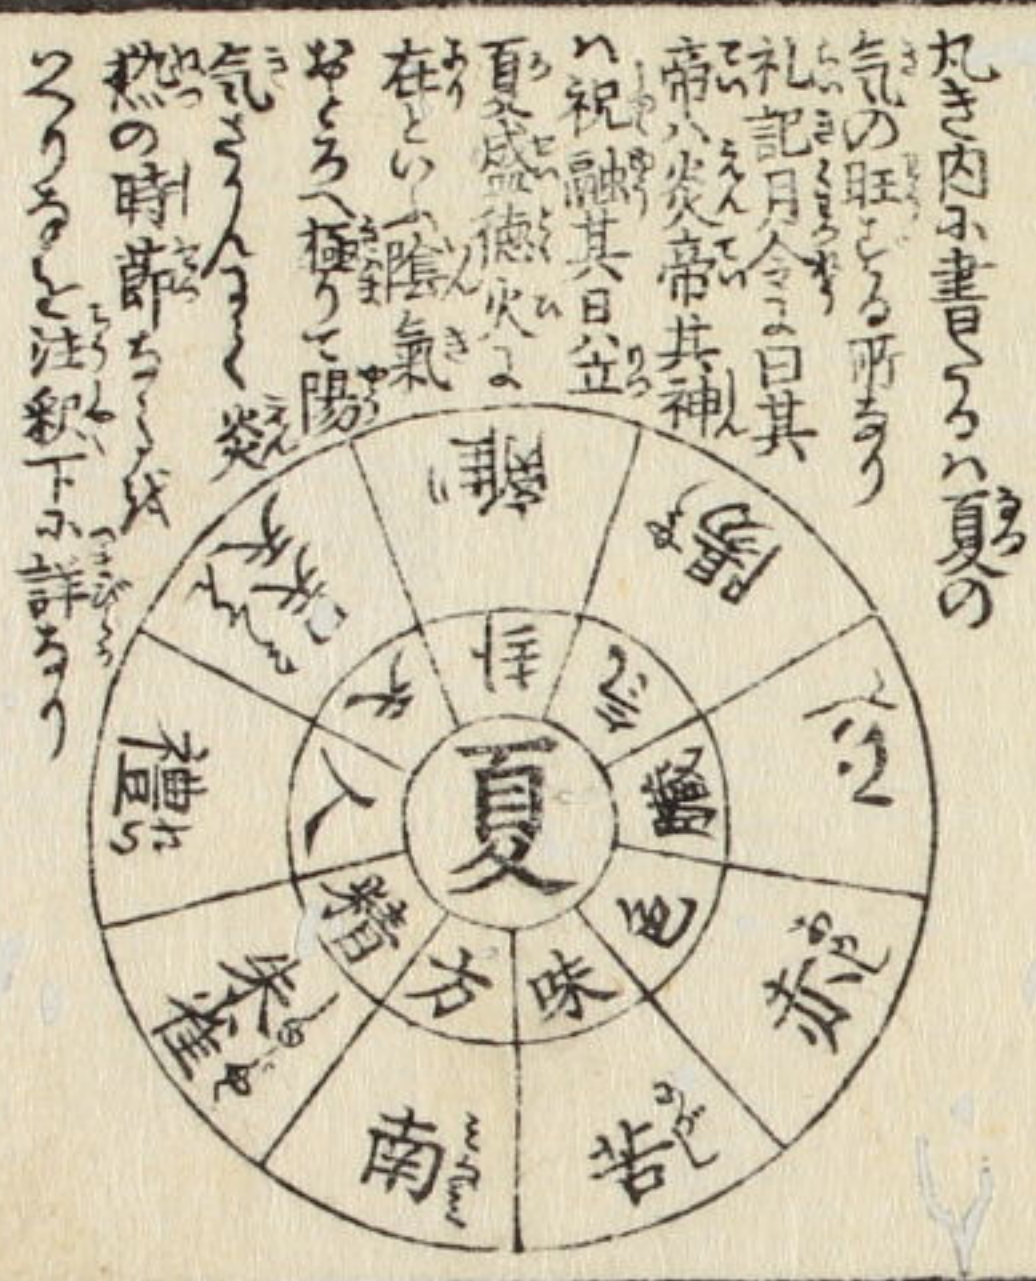 丸き内に書たるは夏の
気の旺ずる所なり
礼記月令に曰其
帝ハ炎帝其神
ハ祝融其日ハ立
夏盛徳火に
在といふ陰氣
おとろへ極りて陽
気さかんにして炎
熱の時節なる故
注釈下に詳なり
夏
卦
氣
臓
色
味
方
精
人
天
離
陽
心
赤
苦
南
朱雀
禮